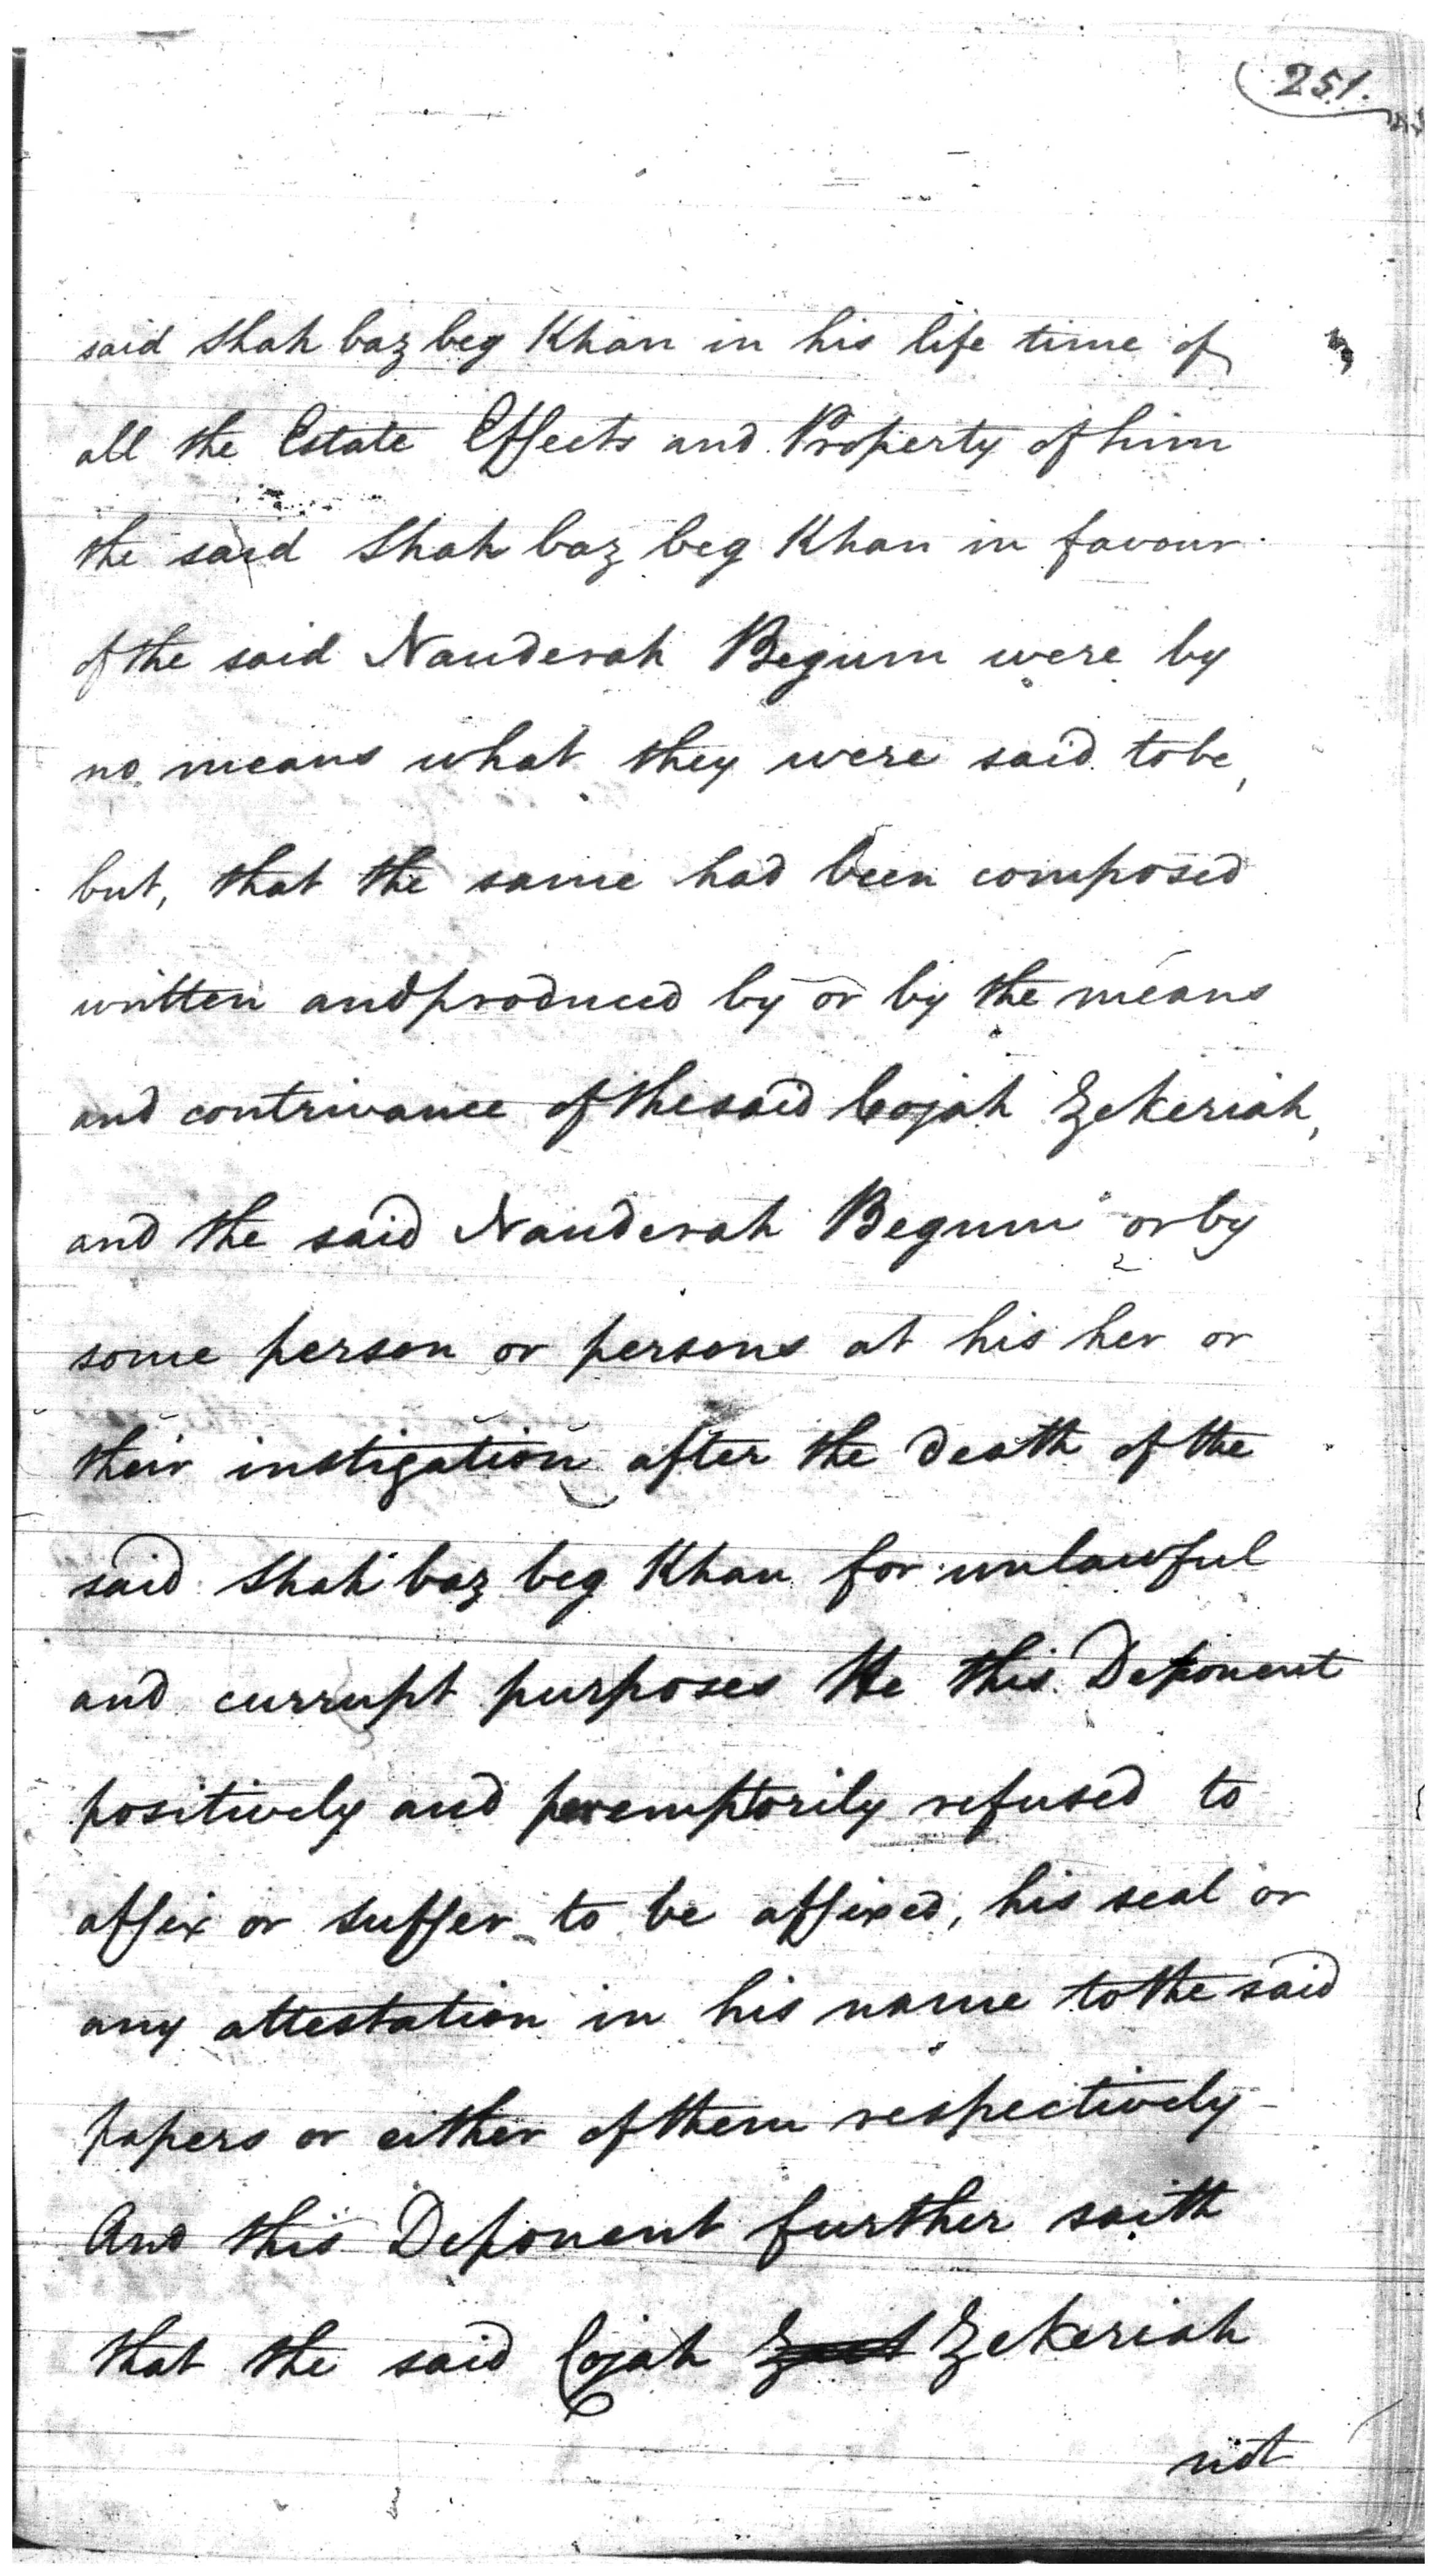 251.
said Shah baz beg Khan in his life time of
all the Estate Effects and Property of him
the said Shah baz beg Khan in favour
of the said Nauderah Begum were by
no means what they were said to be,
but, that the same had been composed
written and produced by or by the means
and contrivance of the said Cojah Zekeriah,
and the said Nauderah Begum or by
some person or persons at his her or
their instigation after the death of the
said Shah baz beg Khan for unlawful
and currupt purposes He this Deponent
positively and peremptorily refused to
affix or suffer to be affixed, his seal or
any attestation in his name to the said
papers or either of them respectively
And this Deponent further saith
that the said Cojah Zekeriah
not